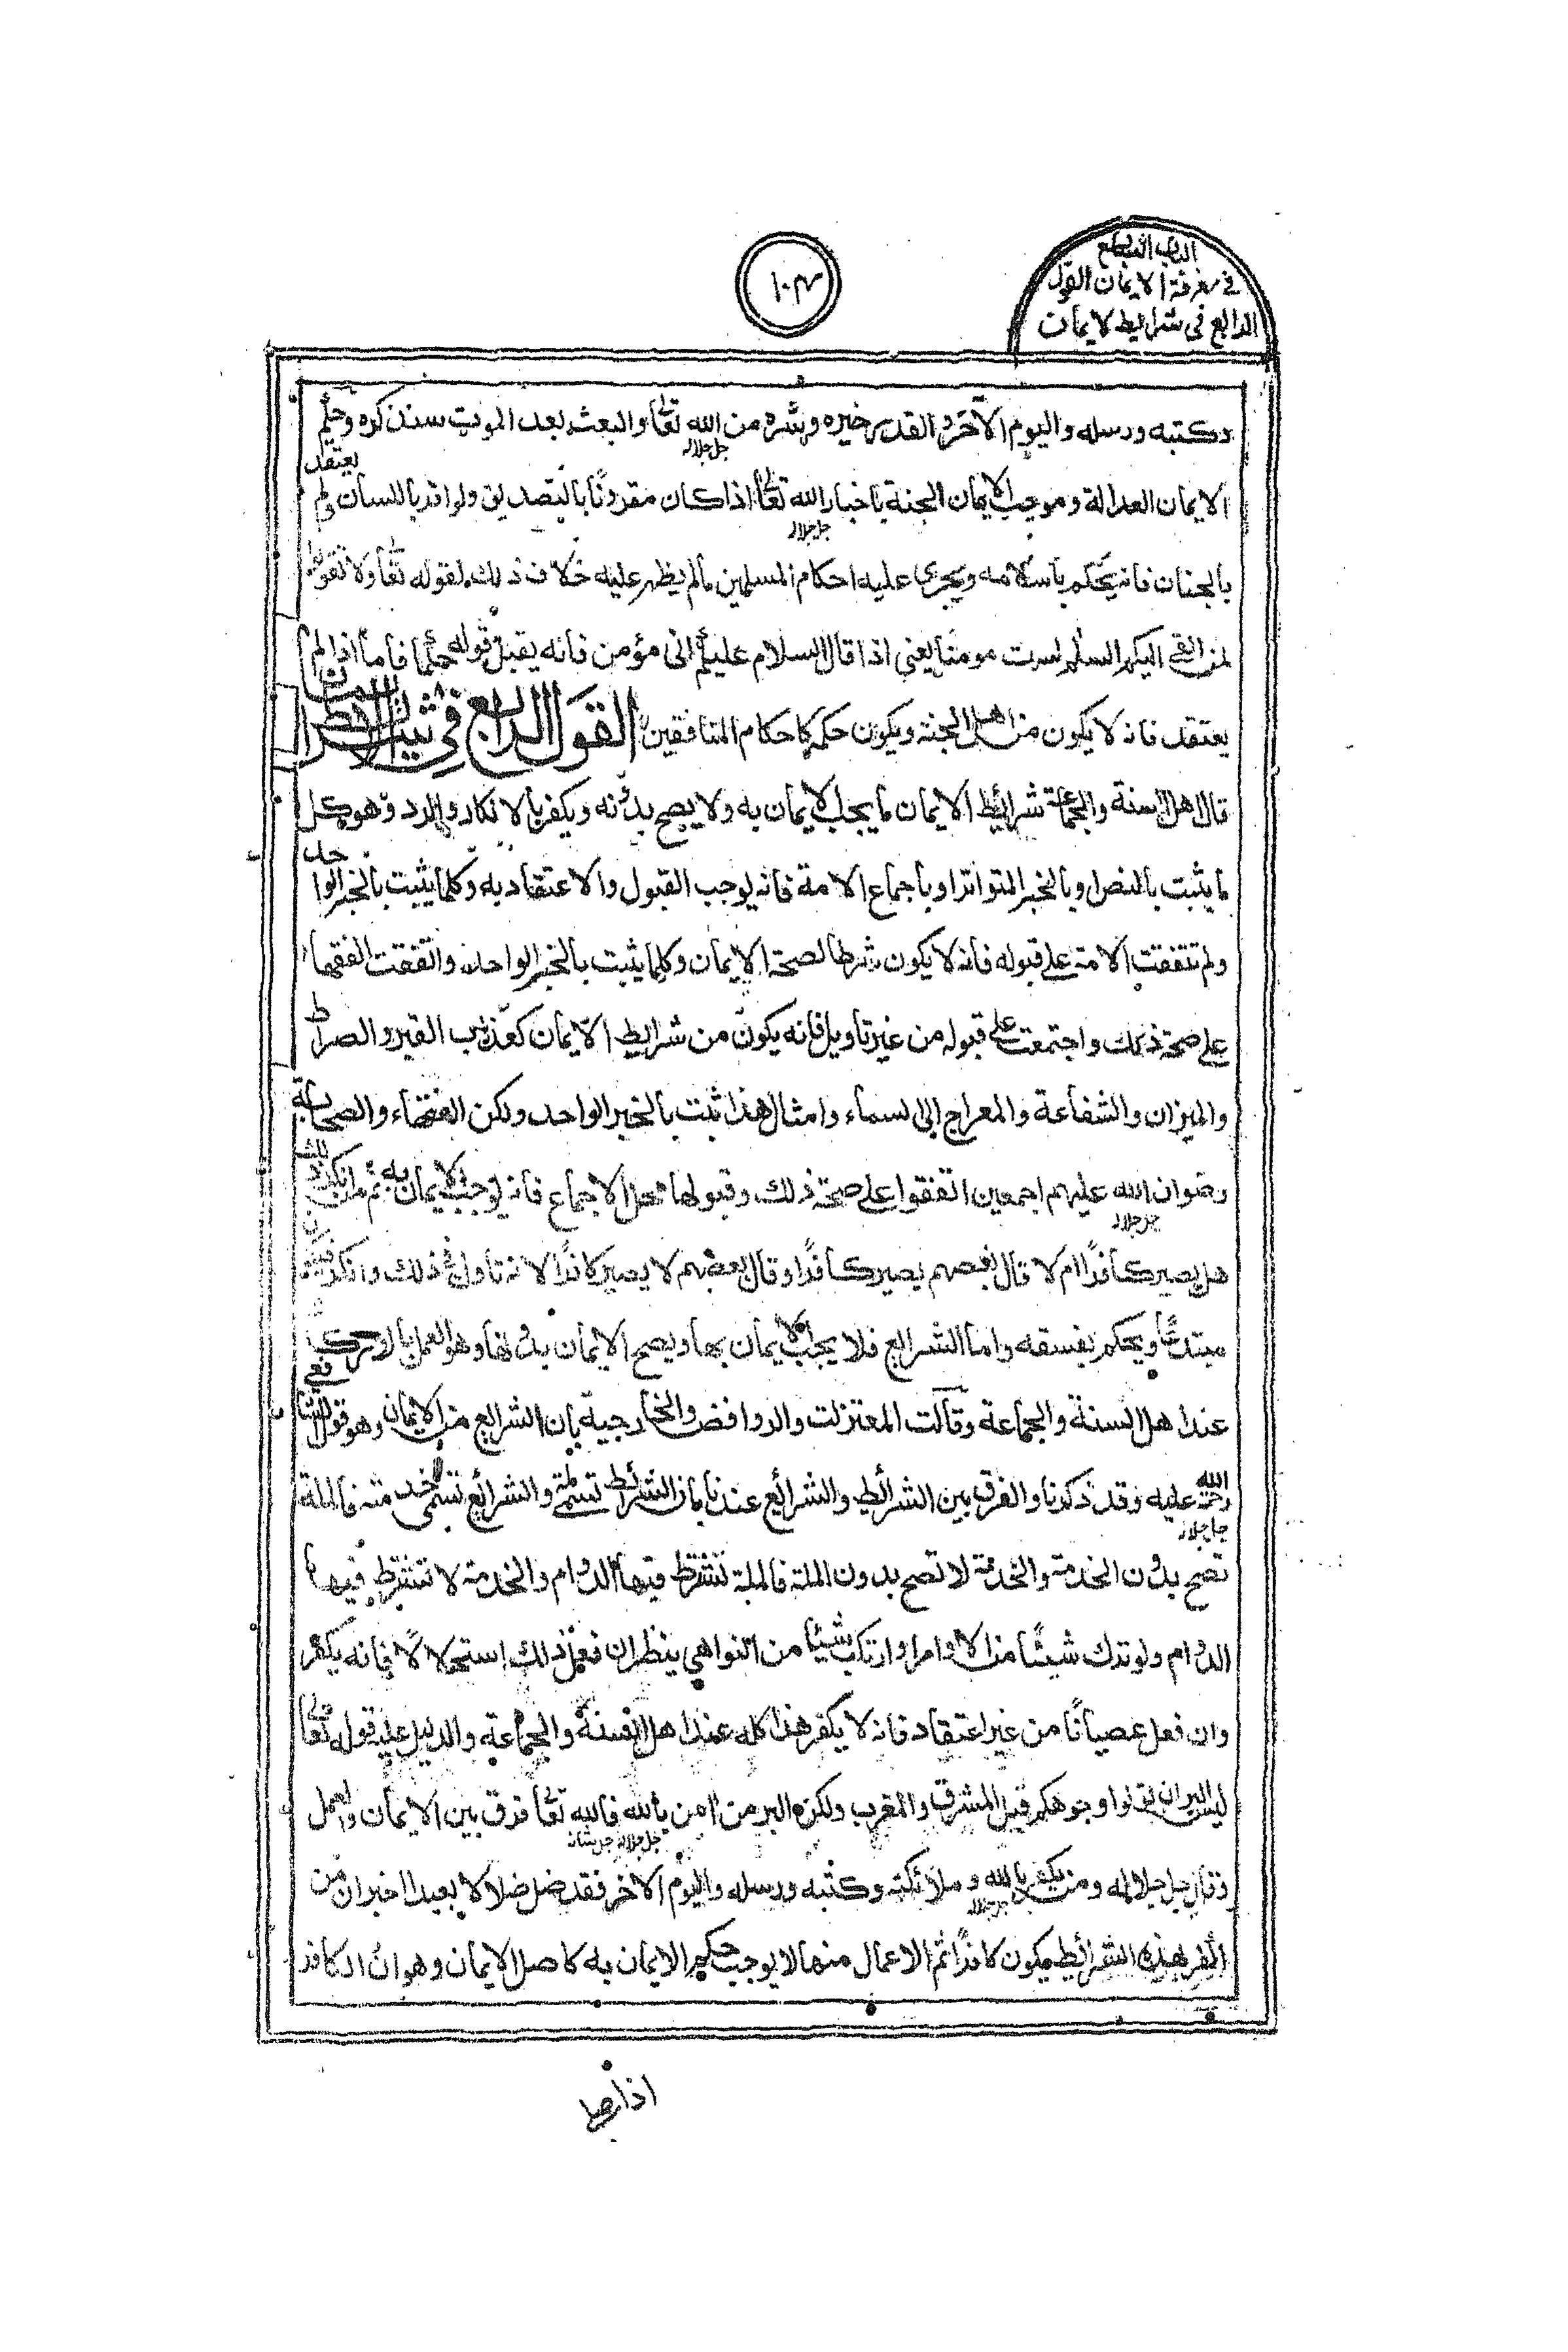 الباب السابع
في معرفة الايمان القول
الرابع في شرايط الايمان
١٠٣
وكتبه ورسله واليوم الآخر والقدر خيره وشره من الله تعالى والبعث بعد الموت سنذكره وحكم
جل جلاله
الايمان العدالة وموجب الايمان الجنة باخبار الله تعالى اذا كان مقرونًا بالتصديق ولو اقر باللسان ولم يعتقد
جل جلاله
بالجنان فانه يحكم باسلامه ويجرى عليه احكام المسلمين مالم يظهر عليه خلاف ذلك لقوله تعالى ولا تقولوا
لمن القى اليكم السلم لست مومنًا يعني اذا قال السلام عليكم انى مؤمن فانه يقبل قوله حكما فاما اذا لم
يعتقد فانه لا يكون من اهل الجنة ويكون حكمه كاحكام المنافقين القول الرابع في شرايط الايمان
قال اهل السنة والجماعة شرائط الايمان ما يجب الايمان به ولا يصح بدونه ويكفر بالانكار والرد وهو كل
ما يثبت بالنص او بالخبر المتواتر او باجماع الامة فانه يوجب القبول والاعتقاد به وكلما يثبت بالخبر الواحد
ولم تتفقت الامة على قبوله فانه لا يكون شرطا لصحة الايمان وكلما يثبت بالخبر الواحد واتفقت الفقهاء
على صحة ذلك واجتمعت على قبوله من غير تاويل فانه يكون من شرايط الايمان كعذاب القبر والصراط
والميزان والشفاعة والمعراج الى السماء وامثال هذا ثبت بالخبر الواحد ولكن الفقهاء والصحابة
رضوان الله عليهم اجمعين اتفقوا على صحة ذلك وقبولها فحل الاجماع فانه يوجب الايمان به ثم من انكر ذلك
جل جلاله
هل يصير كافرًا ام لا قال بعضهم يصير كافرًا وقال بعضهم لا يصير كافرًا لانه تاول في ذلك وانكر فيكون
مبتدعًا ويحكم بفسقه واما الشرايع فلا يجب الايمان بها ويصح الايمان بدونها وهو العمل بالاركان
عند اهل السنة والجماعة وقالت المعتزلت والروافض والخارجية بان الشرايع من الايمان وهو قول الشافعي
رحمة الله عليه وقد ذكرنا والفرق بين الشرائط والشرائع عندنا بان الشرائط تسمى ملة والشرائع تسمى خدمته فالملة
جل جلاله
تصح بدون الخدمة والخدمة لا تصح بدون الملة فالملة تشترط فيها الدوام والخدمة لا تشترط فيها
الدوام ولو ترك شيئًا من الاوامر او ارتكب شيئًا من النواهي ينظر ان فعل ذلك استحلالًا فانه يكفر
وان فعل عصيانًا من غير اعتقاد فانه لا يكفر هذا كله عند اهل السنة والجماعة والدليل عليه قوله تعالى
ليس البر ان تولوا وجوهكم قبل المشرق والمغرب ولكن البر من امن بالله فالله تعالى فرق بين الايمان والعمل
جل جلاله جل شانه
وقال جل جلاله ومن يكفر بالله وملائكته وكتبه ورسله واليوم الاخر فقد ضل ضلالا بعيدا اخبر ان من
جل جلاله
انكر بهذه الشرائط يكون كافرًا ثم الاعمال منها لا يوجب حكم الايمان به كاصل الايمان وهو ان الكافر
اذا صلى